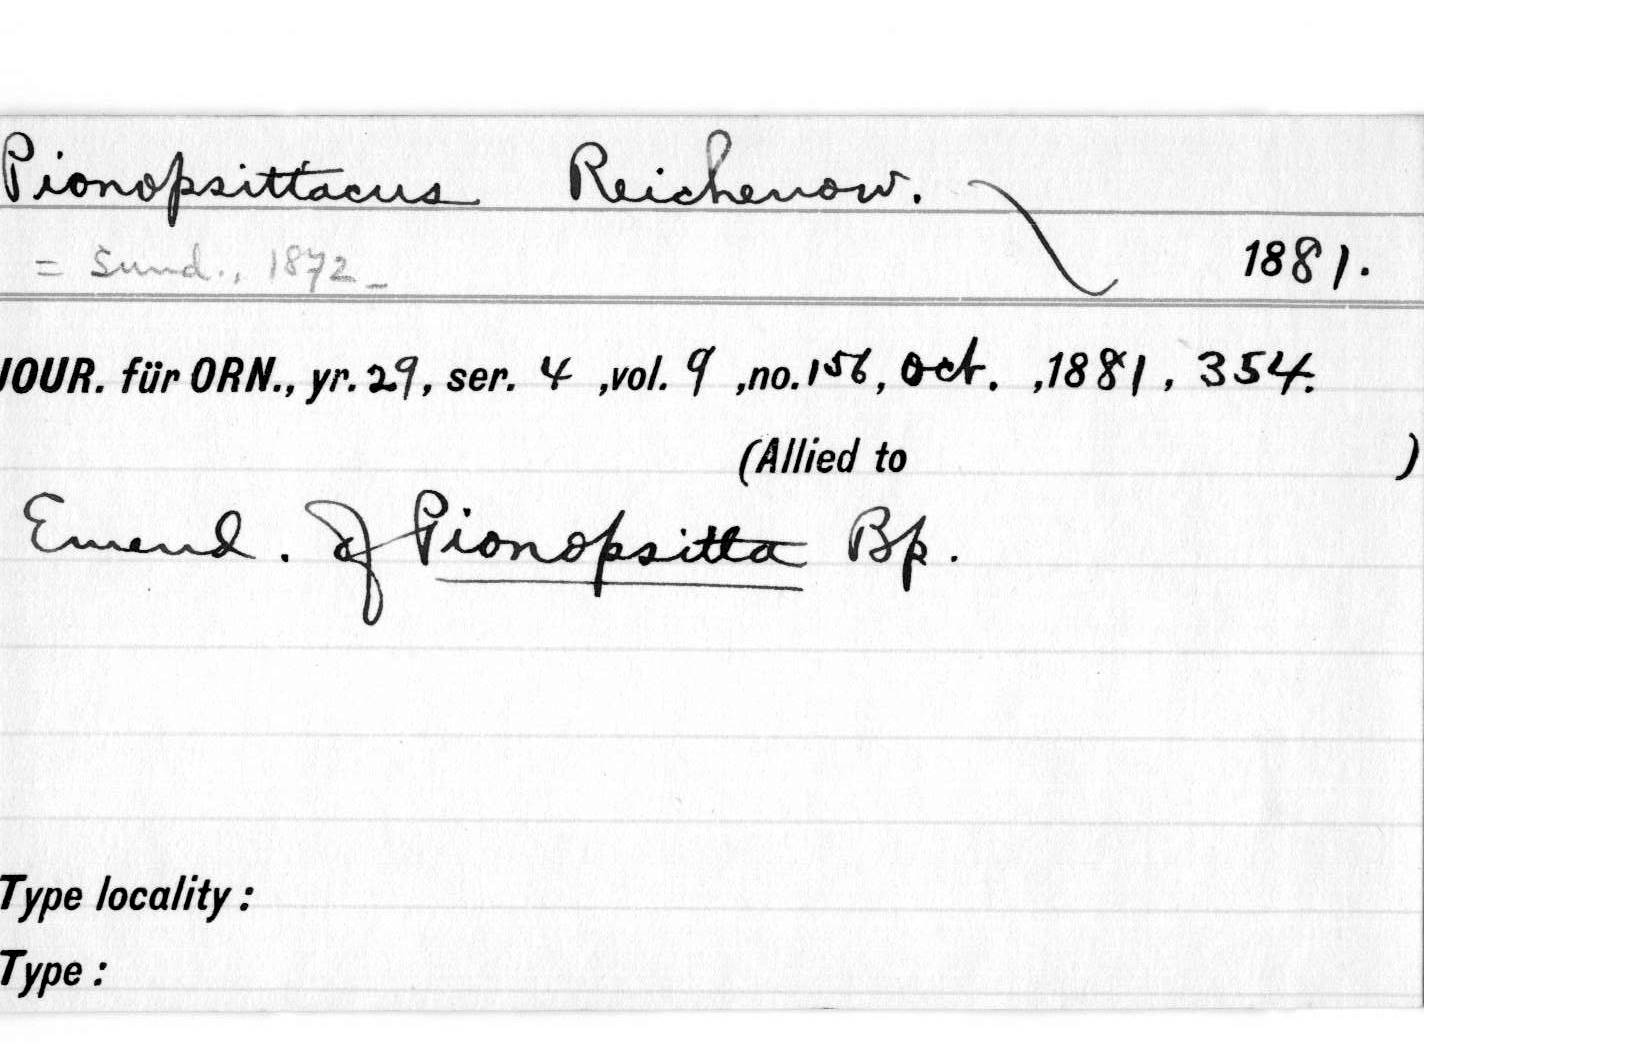 Pionopsittacus Reichenow.
= Sund., 1872_ 1881.
JOUR. für ORN., yr. 29, ser. 4 ,vol. 9 ,no. 156, Oct. ,1881 , 354.
(Allied to )
Emend. of Pionopsitta Bp.
Type locality :
Type :